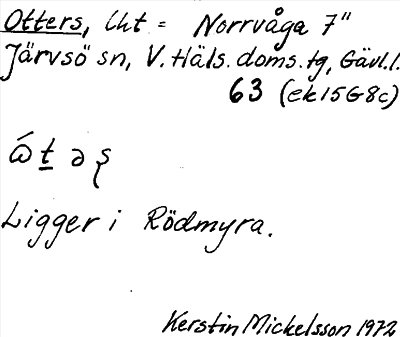 Otters, lht = Norrvåga 7"
Järvsö sn, V. Häls. doms. tg, Gävl.l.
63 (ek 15G8c)
ώt̲əʂ
Ligger i Rödmyra.
Kerstin Mickelsson 1972